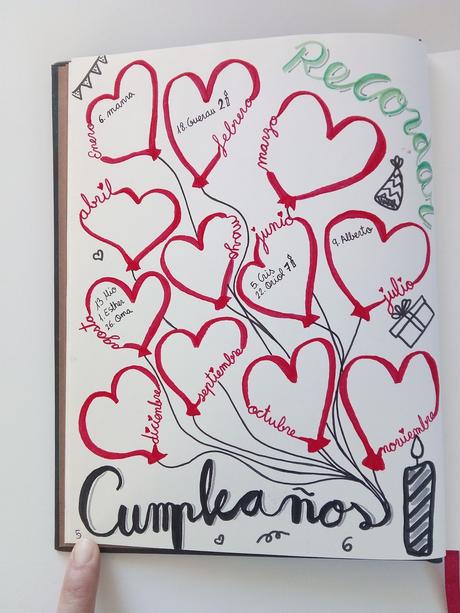 Recordar
Enero
6. mama
18. Guerau 2
febrero
marzo
abril
mayo
junio
5. Cris
22. Oriol 7
9. Alberto
julio
13. Mio
1. Esther
26. Oma
agosto
septiembre
octubre
noviembre
diciembre
Cumpleaños
5
6